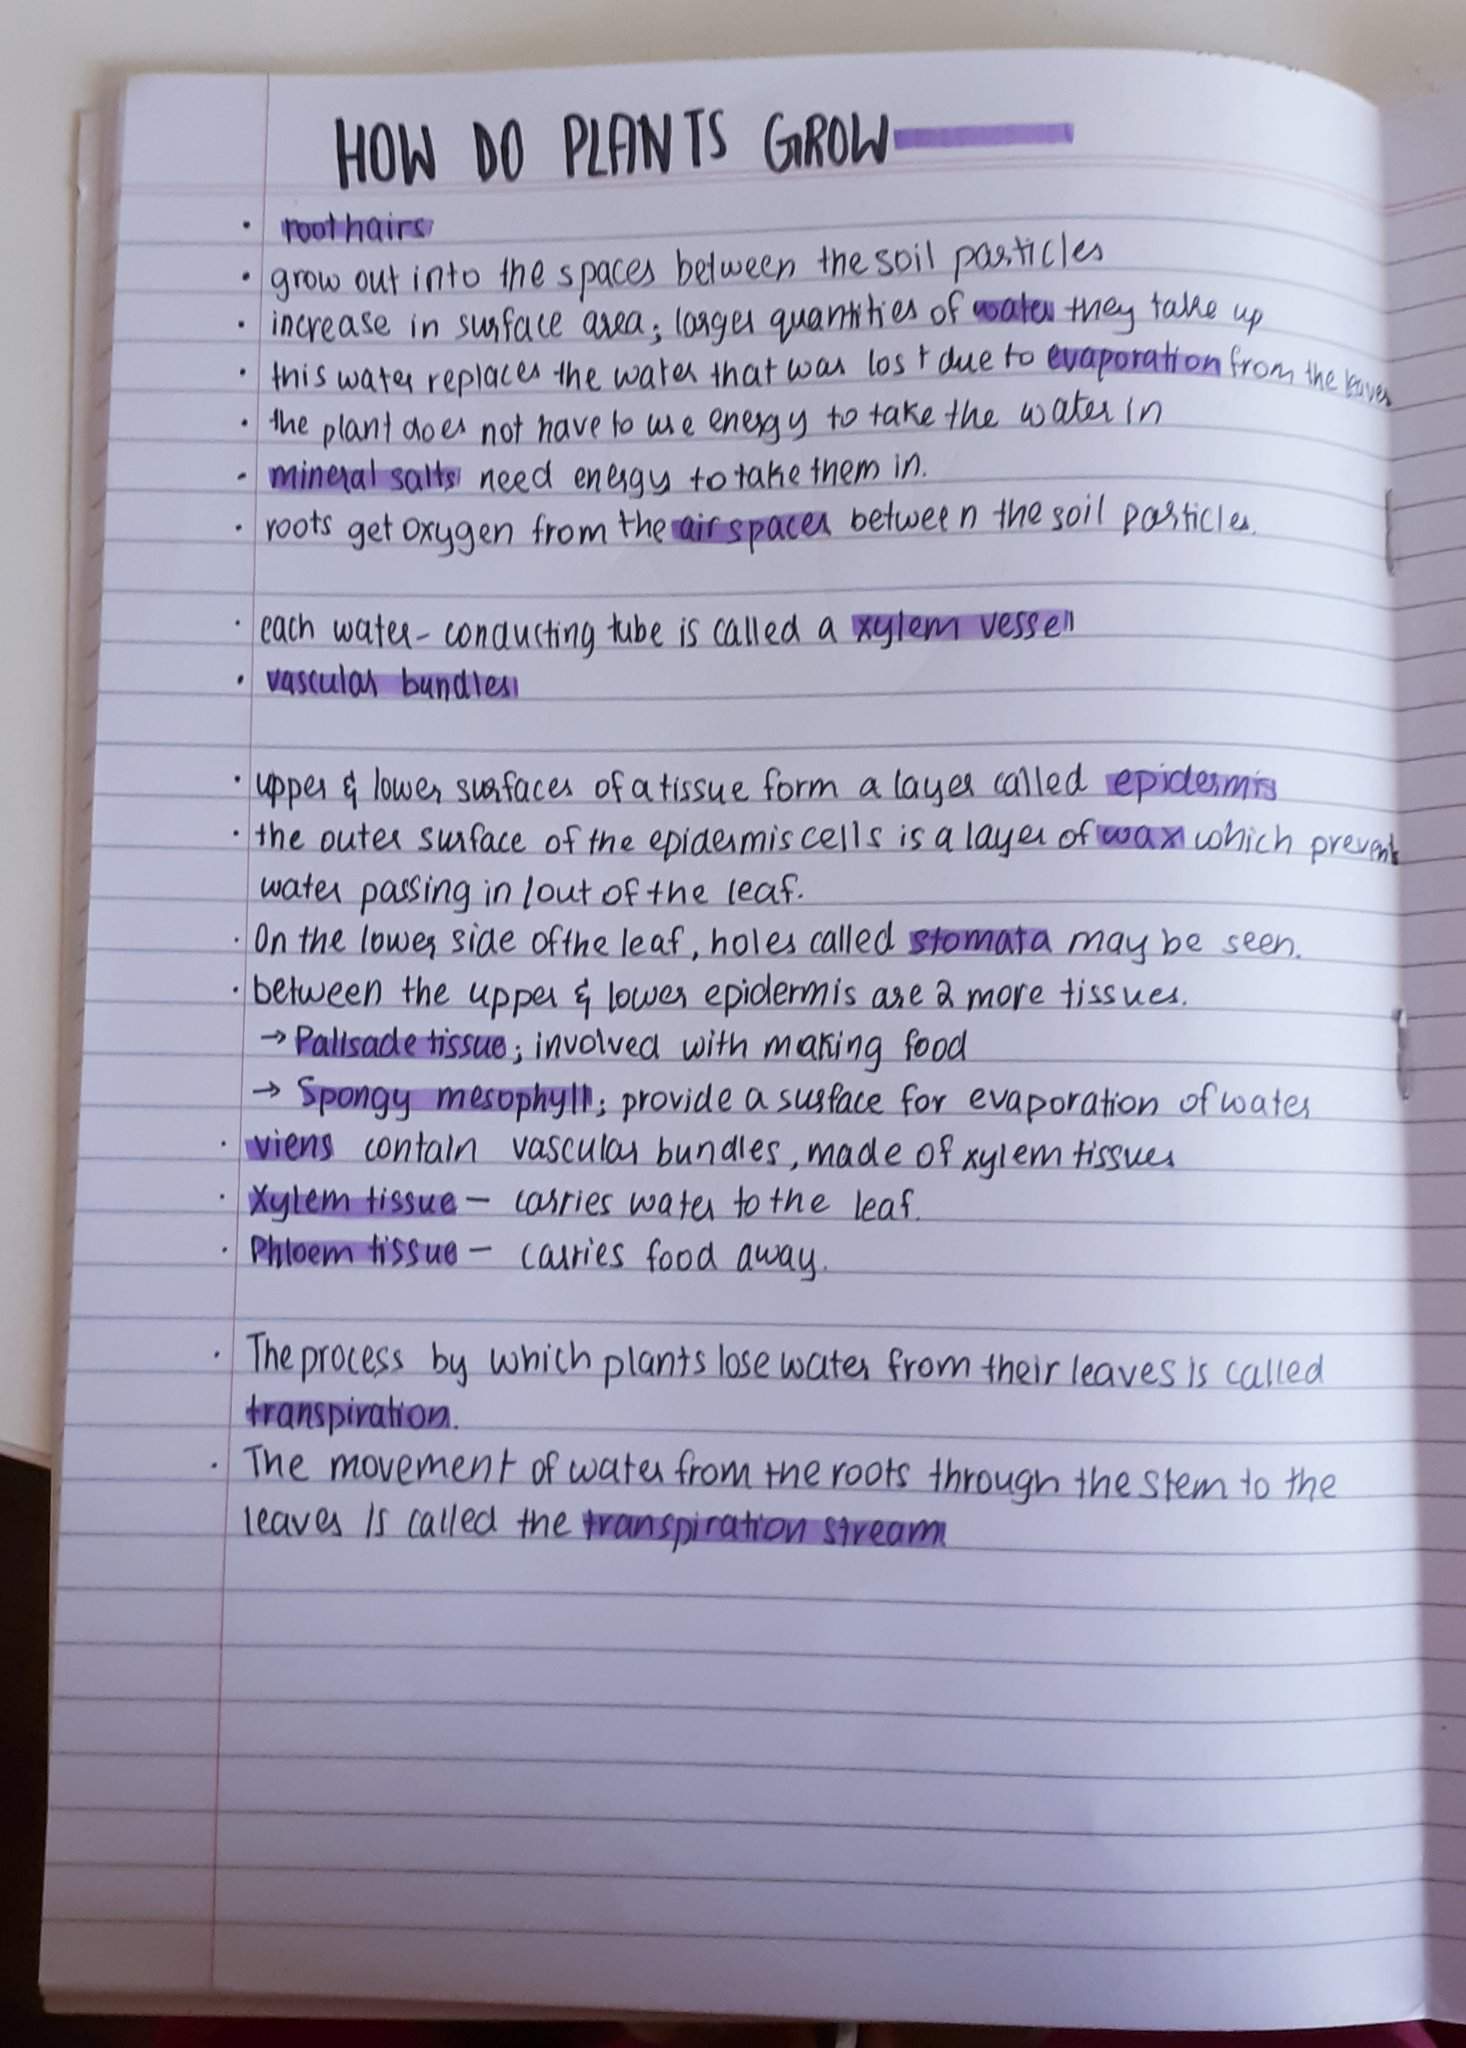 HOW DO PLANTS GROW
• root hairs
• grow out into the spaces between the soil particles
• increase in surface area; larger quantities of water they take up
• this water replaces the water that was lost due to evaporation from the leaves
• the plant does not have to use energy to take the water in
• mineral salts need energy to take them in.
• roots get oxygen from the air spaces between the soil particles.
• each water-conducting tube is called a xylem vessel
• vascular bundles
• upper & lower surfaces of a tissue form a layer called epidermis
• the outer surface of the epidermis cells is a layer of wax which prevent
water passing in/out of the leaf.
• On the lower side of the leaf, holes called stomata may be seen.
• between the upper & lower epidermis are 2 more tissues.
→ Palisade tissue; involved with making food
→ Spongy mesophyll; provide a surface for evaporation of water
• viens contain vascular bundles, made of xylem tissues
• Xylem tissue – carries water to the leaf.
• Phloem tissue – carries food away.
• The process by which plants lose water from their leaves is called
transpiration.
• The movement of water from the roots through the stem to the
leaves is called the transpiration stream